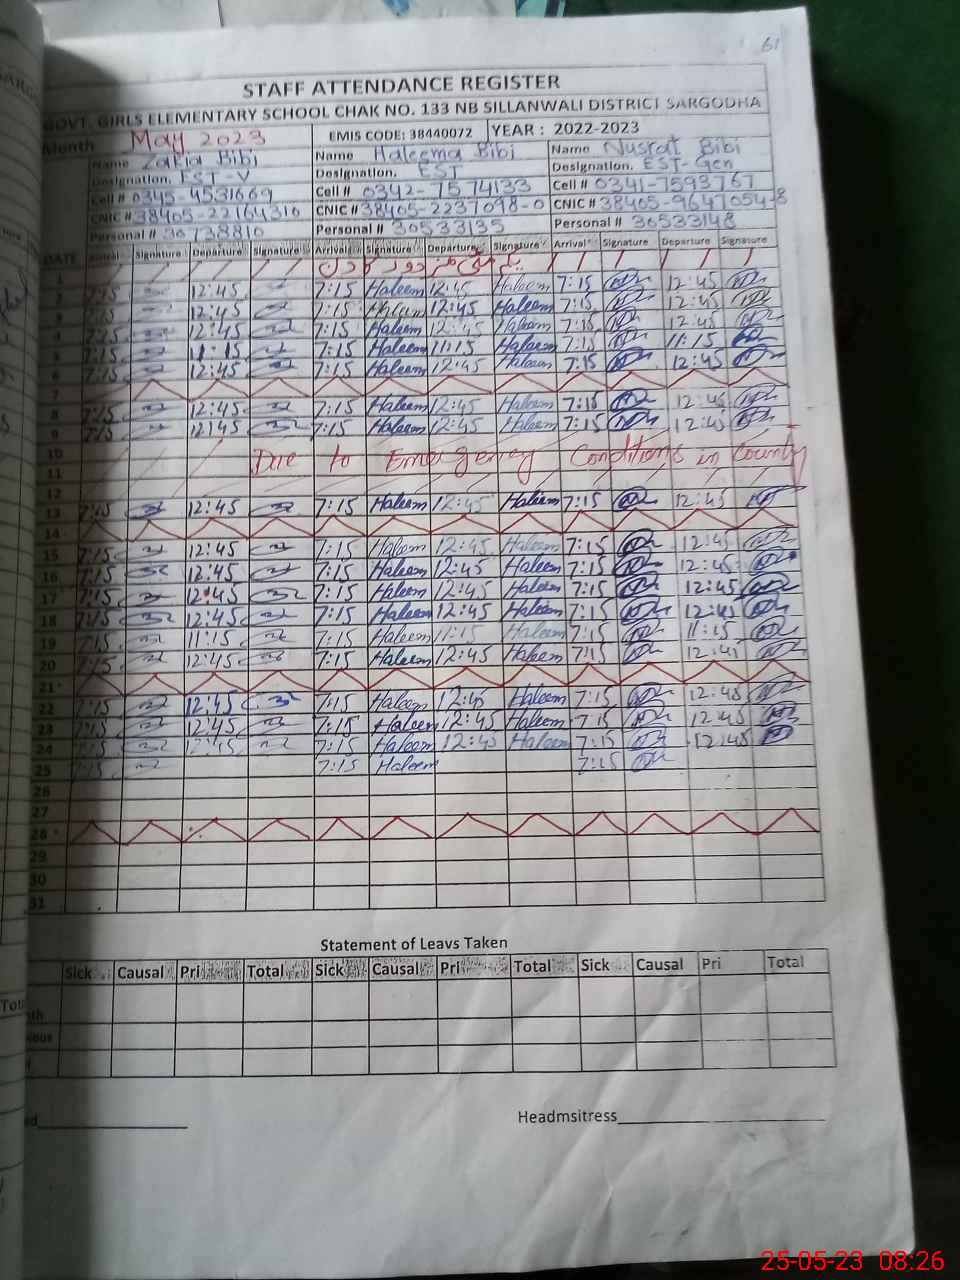 61
STAFF ATTENDANCE REGISTER
GOVT. GIRLS ELEMENTARY SCHOOL CHAK NO. 133 NB SILLANWALI DISTRICT SARGODHA
Month May 2023 EMIS CODE: 38440072 YEAR : 2022-2023
Name Zakia Bibi Name Haleema Bibi Name Nusrat Bibi
Designation, EST-V Designation, EST Designation, EST-Gen
Cell # 0345-4531669 Cell # 0342-7574133 Cell # 0341-7593767
CNIC # 38405-22164310 CNIC # 38405-2237098-0 CNIC # 38405-9647054-8
Personal # 30738810 Personal # 30533135 Personal # 30533148
DATE Arrival Signature Departure Signature Arrival Signature Departure Signature Arrival Signature Departure Signature
1 یکم مئی مزدور کا دن
2 7:15 12:45 7:15 Haleem 12:45 Haleem 7:15 12:45
3 7:15 12:45 7:15 Haleem 12:45 Haleem 7:15 12:45
4 7:15 12:45 7:15 Haleem 12:45 Haleem 7:15 12:45
5 7:15 11:15 7:15 Haleem 11:15 Haleem 7:15 11:15
6 7:15 12:45 7:15 Haleem 12:45 Haleem 7:15 12:45
7
8 7:15 12:45 7:15 Haleem 12:45 Haleem 7:15 12:45
9 7:15 12:45 7:15 Haleem 12:45 Haleem 7:15 12:45
10 Due to Emergency Conditions in Country
11
12
13 7:15 12:45 7:15 Haleem 12:45 Haleem 7:15 12:45
14
15 7:15 12:45 7:15 Haleem 12:45 Haleem 7:15 12:45
16 7:15 12:45 7:15 Haleem 12:45 Haleem 7:15 12:45
17 7:15 12:45 7:15 Haleem 12:45 Haleem 7:15 12:45
18 7:15 12:45 7:15 Haleem 12:45 Haleem 7:15 12:45
19 7:15 11:15 7:15 Haleem 11:15 Haleem 7:15 11:15
20 7:15 12:45 7:15 Haleem 12:45 Haleem 7:15 12:45
21
22 7:15 12:45 7:15 Haleem 12:45 Haleem 7:15 12:45
23 7:15 12:45 7:15 Haleem 12:45 Haleem 7:15 12:45
24 7:15 12:45 7:15 Haleem 12:45 Haleem 7:15 12:45
25 7:15 7:15 Haleem 7:15
26
27
28
29
30
31
Statement of Leavs Taken
Sick Causal Pri Total Sick Causal Pri Total Sick Causal Pri Total
Headmsitress
25-05-23 08:26